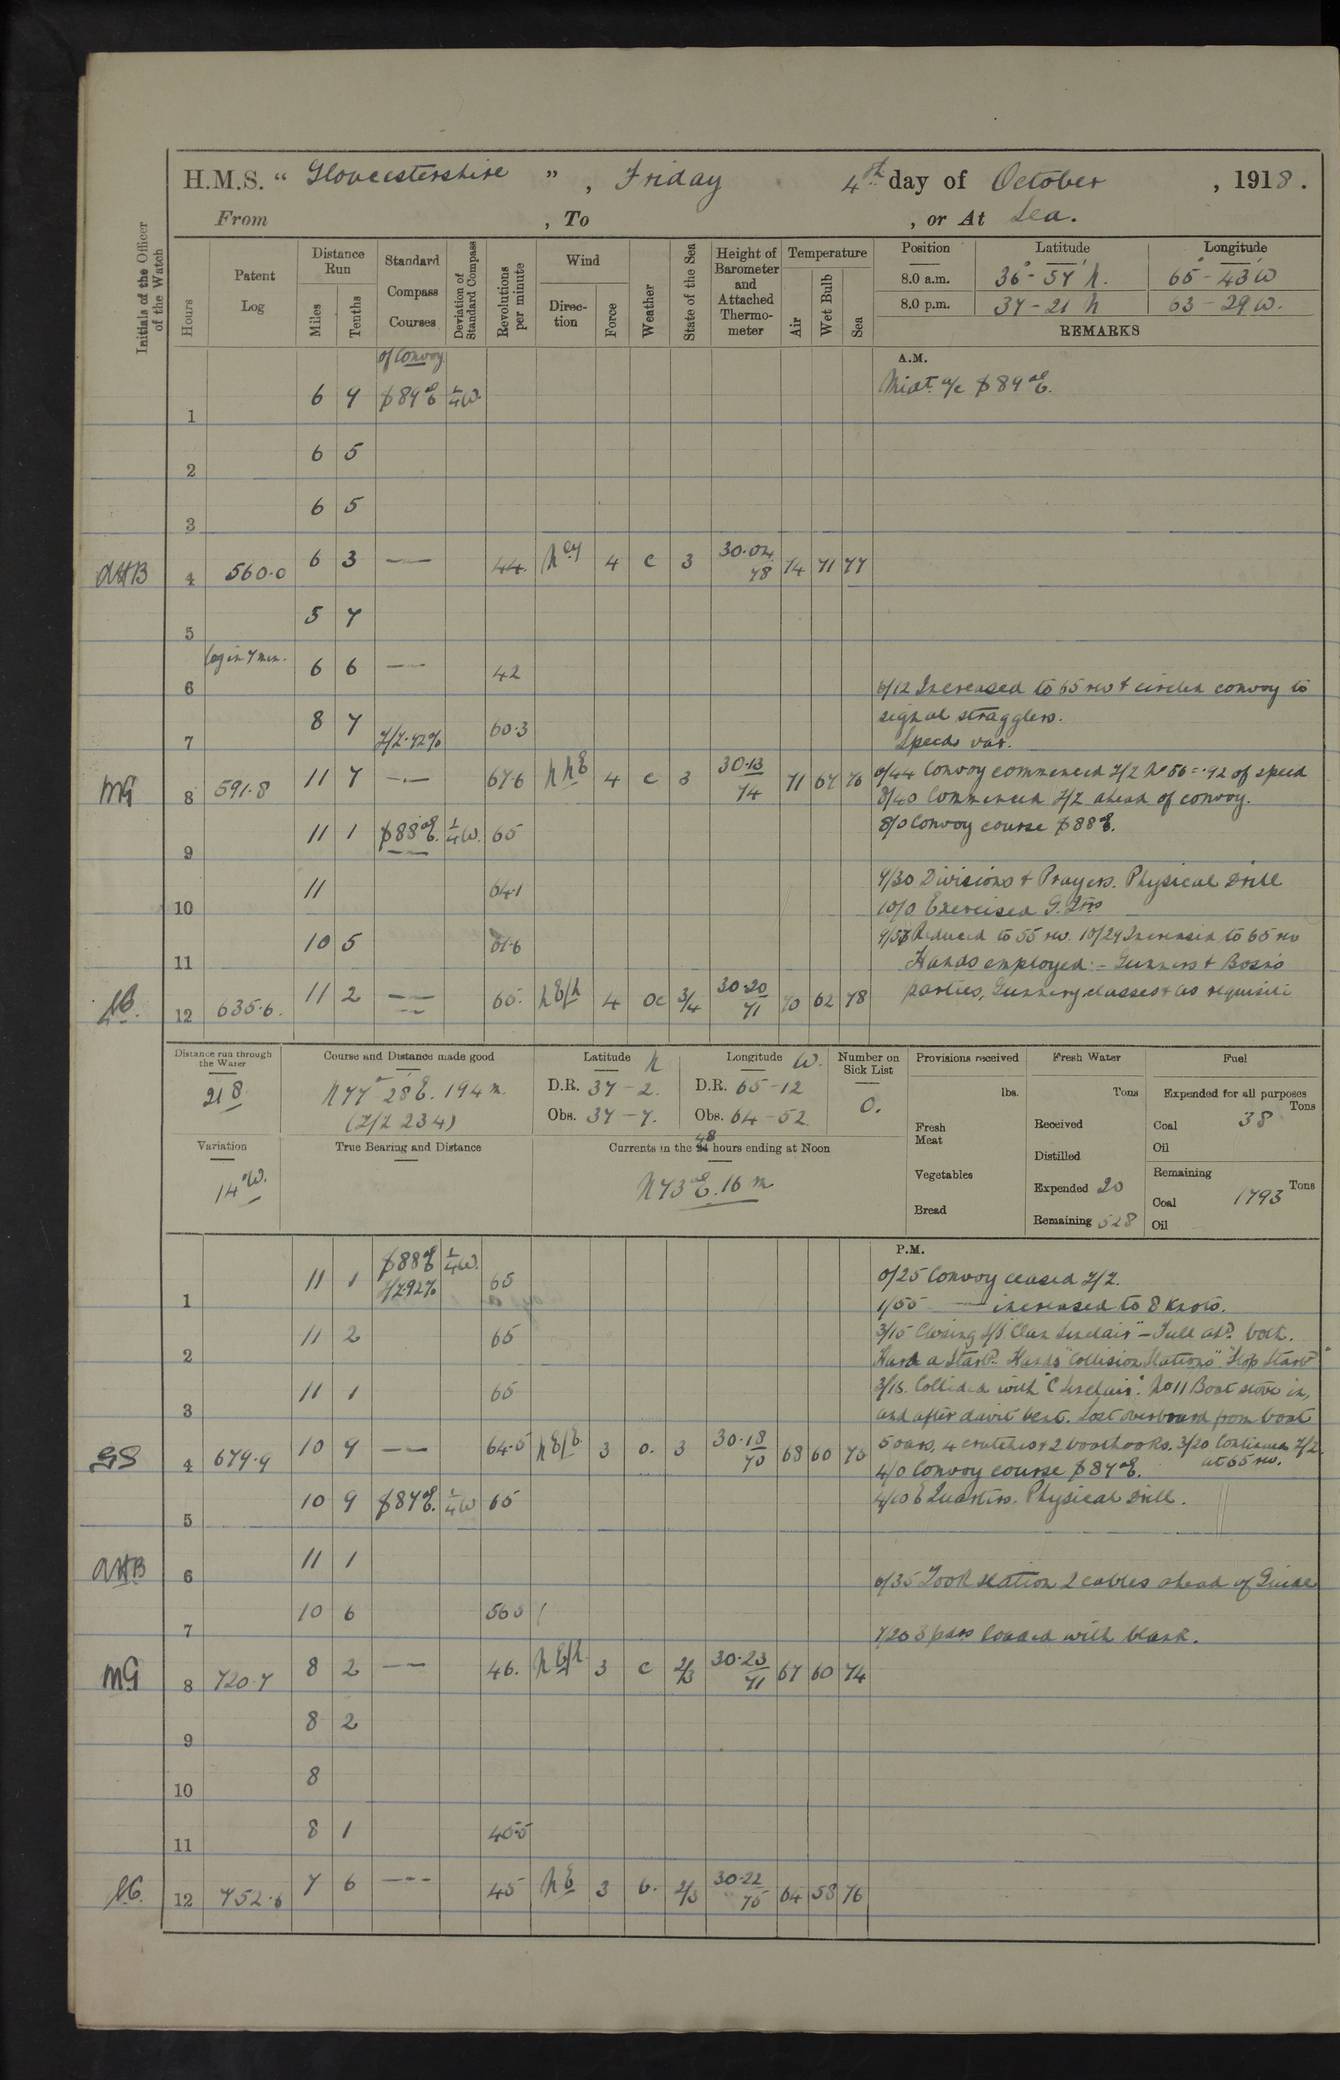 H.M.S. “ Gloucestershire ” , Friday 4th day of October , 1918 .
From , To , or At Sea.
Initials of the Officer of the Watch
Hours
Patent Log
Distance Run
Miles
Tenths
Standard Compass Courses
Deviation of Standard Compass
Revolutions per minute
Wind
Direction
Force
Weather
State of the Sea
Height of Barometer and Attached Thermometer
Temperature
Air
Wet Bulb
Sea
Position Latitude Longitude
8.0 a.m. 36° - 57' N. 65° - 43' W
8.0 p.m. 37 - 21 N 63 - 29 W.
REMARKS
of Convoy
A.M.
1 6 7 S 89° E ¼W. Midt. a/c S 89° E.
2 6 5
3 6 5
AHB 4 560.0 6 3 — 44. Nly 4 c 3 30.04 78 74 71 77
5 5 7
6 log in 7 min. 6 6 — 42
6/12 Increased to 65 rev & circled convoy to
7 8 7 Z/Z.92% 60.3 signal stragglers.
Speeds var.
MG 8 591.8 11 7 — 67.6 NNE 4 c 3 30.13 74 71 67 76 6/44 Convoy commenced Z/Z No 56 = .92 of speed
8/40 Commenced Z/Z ahead of convoy.
9 11 1 S 88° E. ¼W. 65 8/0 Convoy course S 88° E.
10 11 64.1 9/30 Divisions & Prayers. Physical Drill
10/0 Exercised G. Qtrs
11 10 5 61.6 Reduced to 55 rev. 10/24 Increased to 65 rev
Hands employed :- Gunners & Bosns
12 635.6. 11 2 — 65. NE/N 4 oc 3/4 30.20 71 70 62 78 parties, Gunnery classes & as requisite
Distance run through the Water
218
Course and Distance made good
N 77° 28' E. 194 m.
(Z/Z 234)
Latitude N
D.R. 37 - 2.
Obs. 37 - 7.
Longitude W.
D.R. 65 - 12
Obs. 64 - 52.
Number on Sick List
0.
Provisions received
lbs.
Fresh Meat
Vegetables
Bread
Fresh Water
Tons
Received
Distilled
Expended 20
Remaining 528
Fuel
Expended for all purposes
Tons
Coal 38
Oil
Remaining
Tons
Coal 1793
Oil
Variation
14° W.
True Bearing and Distance
Currents in the 24 48 hours ending at Noon
N 73° E. 16 m
P.M.
1 11 1 S 88° E ¼W. Z/Z 92% 65 0/25 Convoy ceased Z/Z.
1/55 — increased to 8 knots.
2 11 2 65 3/15 Closing S/S "Clan Sinclair" - Full asn. both.
Hard a Starbd. Hands "Collision Stations" "Stop Starbd"
3 11 1 65 3/18. Collided with "C Sinclair". No 11 Boat stove in,
and after davit bent. Lost overboard from boat
GS 4 679.9 10 9 — 64.5 NE/E 3 o. 3 30.18 70 68 60 75 5 oars, 4 crutches & 2 boathooks. 3/20 Continued Z/Z.
at 65 rev.
4/0 Convoy course S 87° E.
5 10 9 S 87° E. ¼W 65 4/10 E Quarters. Physical Drill.
AHB 6 11 1
6/35 Took station 2 cables ahead of Guide
7 10 6 56.5
7/20 S pdrs loaded with blank.
MG 8 720.7 8 2 — 46. NE/N. 3 c 2/3 30.23 71 67 60 74
9 8 2
10 8
11 8 1 45.5
12 752.6 7 6 --- 45 NE 3 b. 2/3 30.22 75 64 58 76